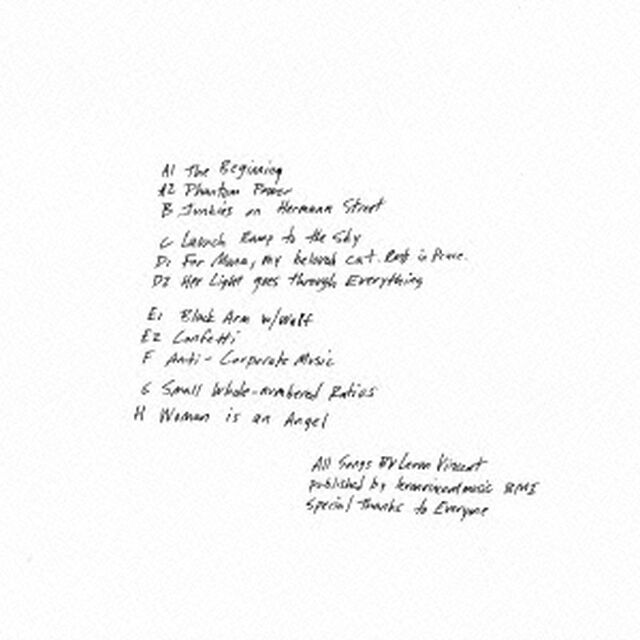 A1 The Beginning
A2 Phantom Power
B Junkies on Hermann Street
C Launch Ramp to the Sky
D1 For Mona, my beloved cat. Rest in Peace.
D2 Her Light goes through Everything
E1 Black Arm w/Wolf
E2 Confetti
F Anti-Corporate Music
G Small Whole-numbered Ratios
H Woman is an Angel
All Songs BY Leron Vincent
published by BMI
Special Thanks to Everyone